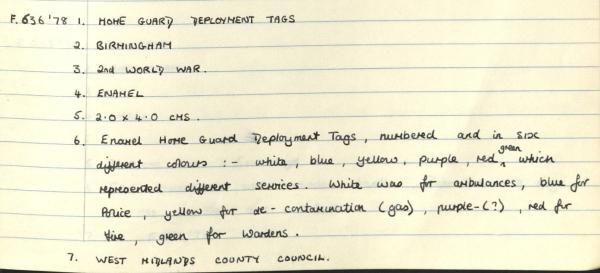 F.636'78 1. HOME GUARD DEPLOYMENT TAGS
2. BIRMINGHAM
3. 2nd WORLD WAR.
4. ENAMEL
5. 2.0 x 4.0 CMS.
6. Enamel Home Guard Deployment Tags, numbered and in six
different colours :- white, blue, yellow, purple, red, green which
represented different services. White was for ambulances, blue for
Police, yellow for de-contamination (gas), purple-(?), red for
fire, green for wardens.
7. WEST MIDLANDS COUNTY COUNCIL.